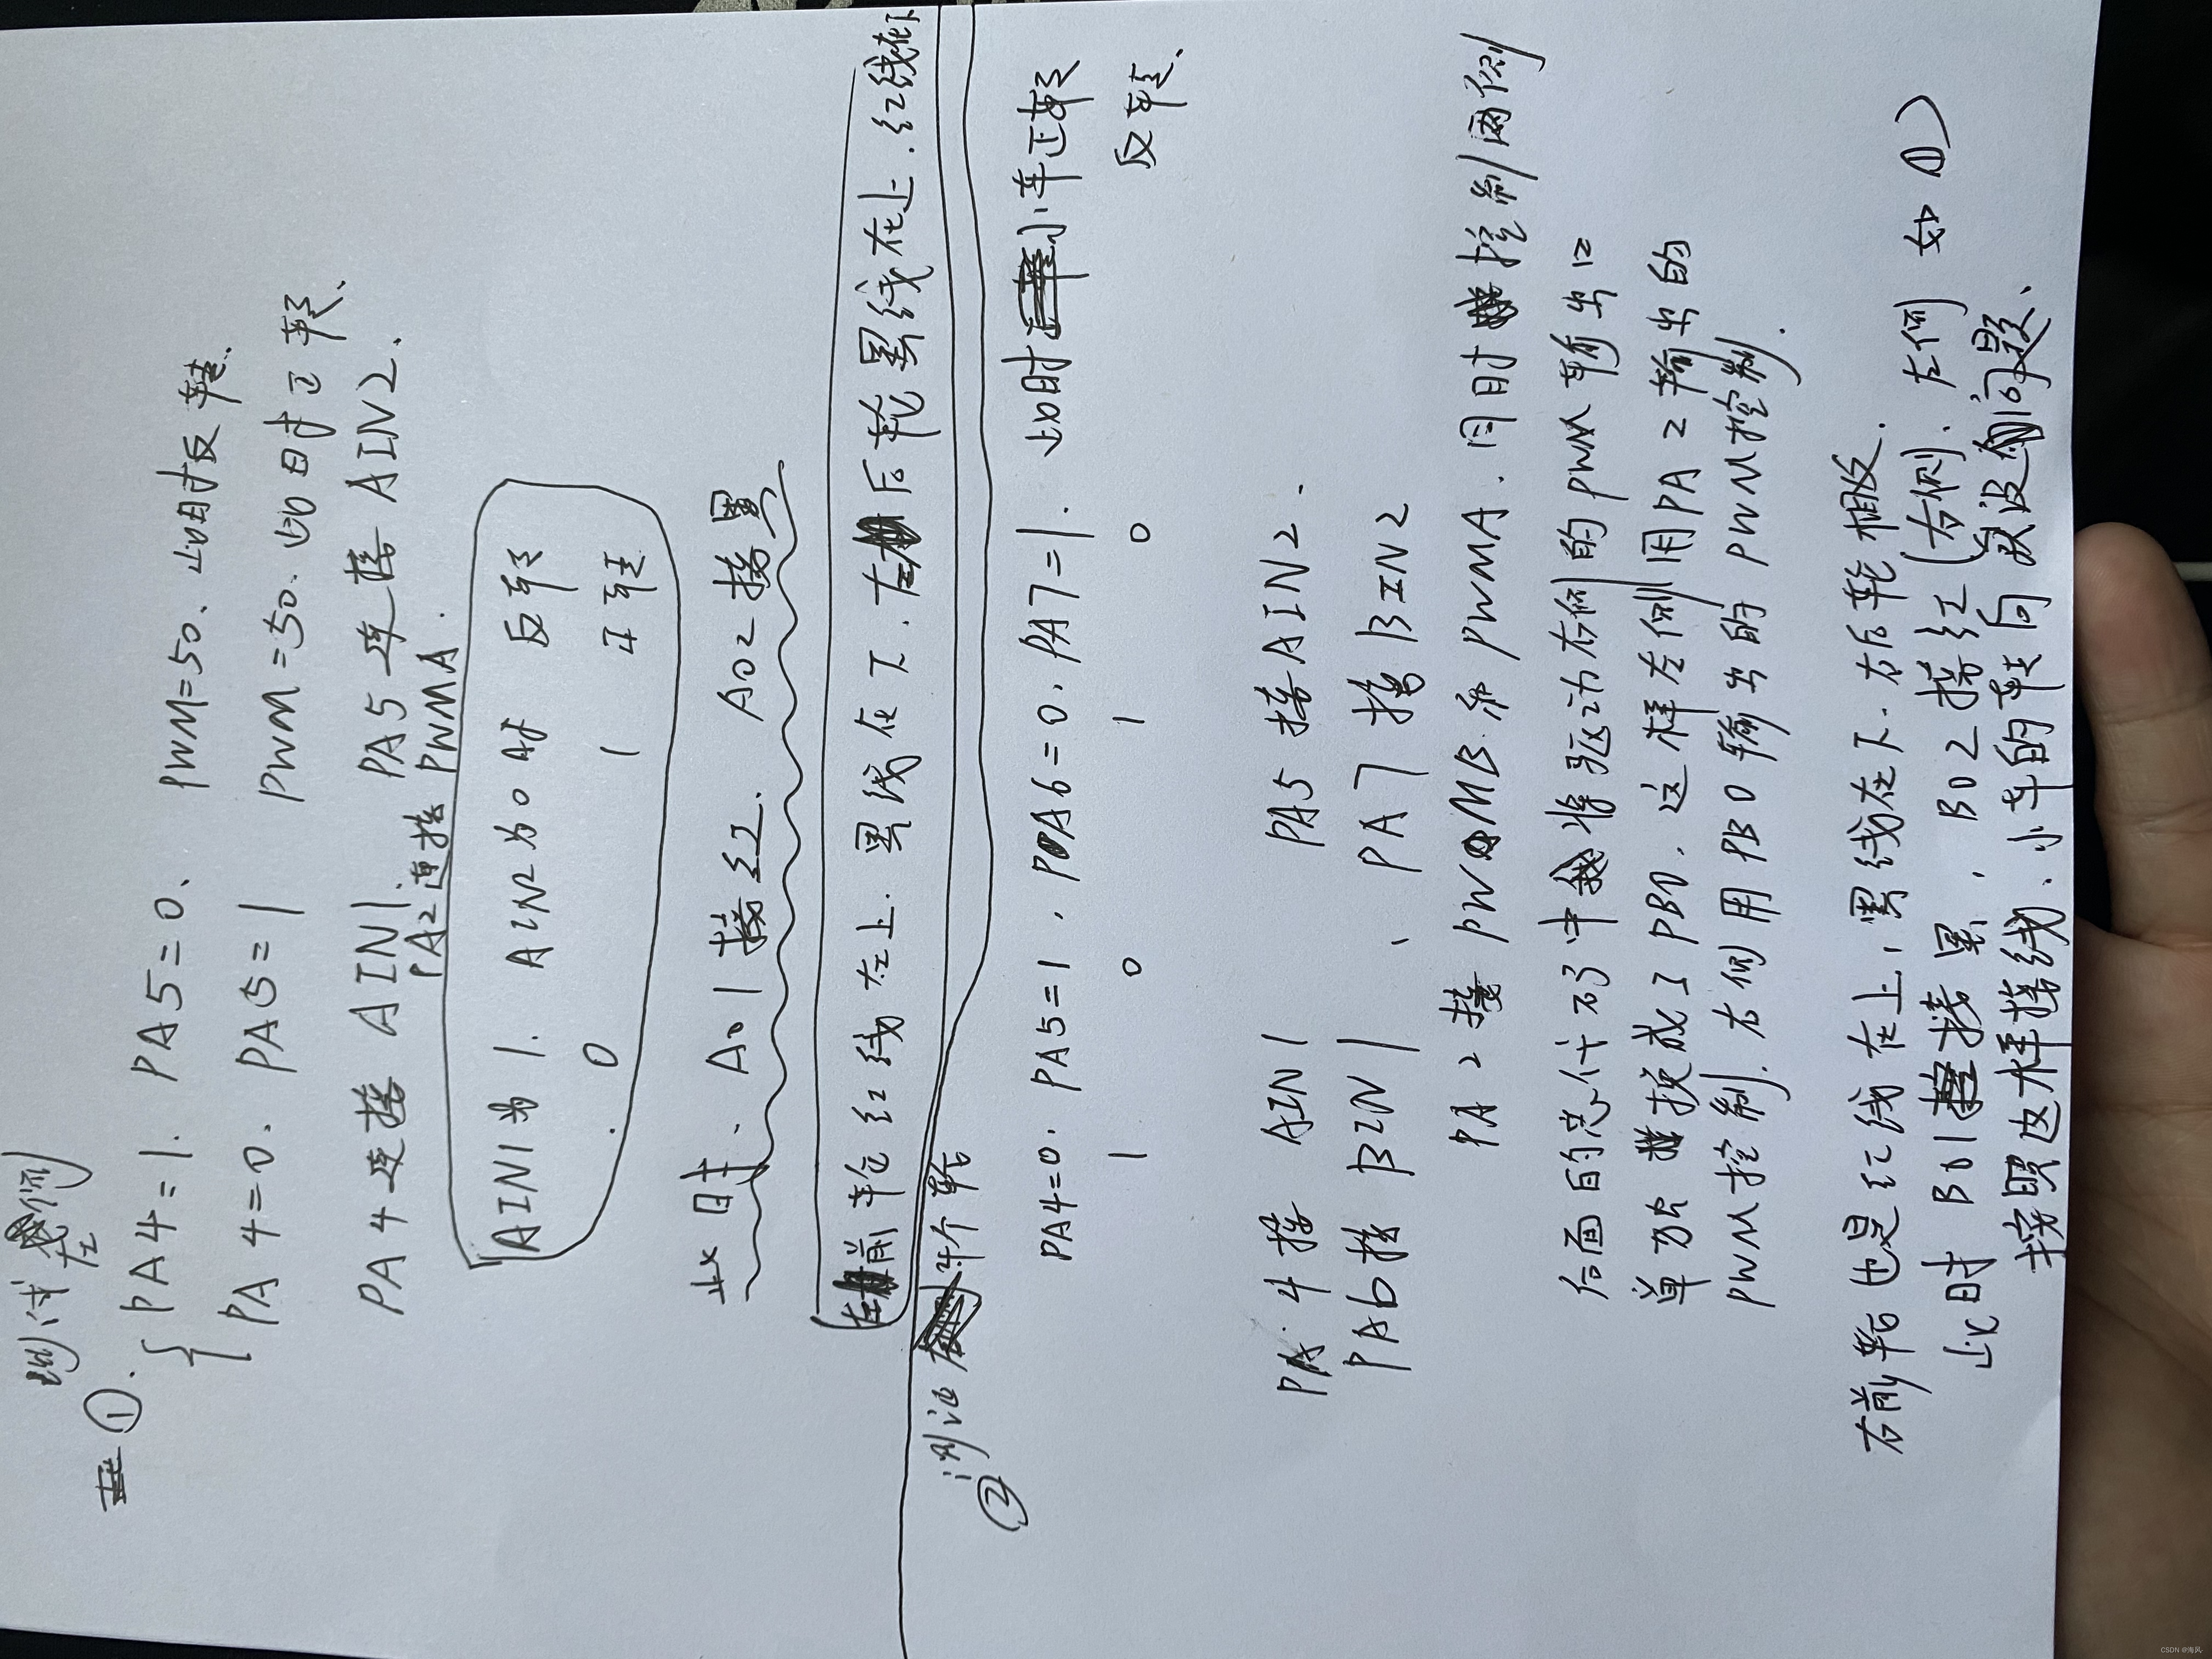 测试左侧
①. PA4=1. PA5=0、 PWM=50、此时反转.
PA4=0. PA5=1 PWM=50. 此时正转、
PA4连接 AIN1. PA5连接 AIN2.
PA2连接 PWMA.
AIN1为1. AIN2为0时 反转
0 1 正转
此时. A01接红. A02接黑
左前轮红线在上. 黑线在下. 左后轮黑线在上. 红线在下
② 测试 4个轮
PA4=0. PA5=1. PA6=0. PA7=1. 此时小车正转
1 0 1 0 反转、
PA4接 AIN1 PA5接AIN2.
PA6接 BIN1 、PA7接BIN2
PA2接 PWMB和 PWMA. 同时控制两侧
后面的总代码中将驱动右侧的PWM输出口
单独换成了PB0. 这样左侧用PA2输出的
PWM控制. 右侧用PB0输出的PWM控制.
右前轮也是红线在上, 黑线在下. 右后轮相反.
此时 B01接黑. B02接红(右侧. 左侧 如①)
按照这样接线. 小车的转向就没问题、
CSDN @海风.